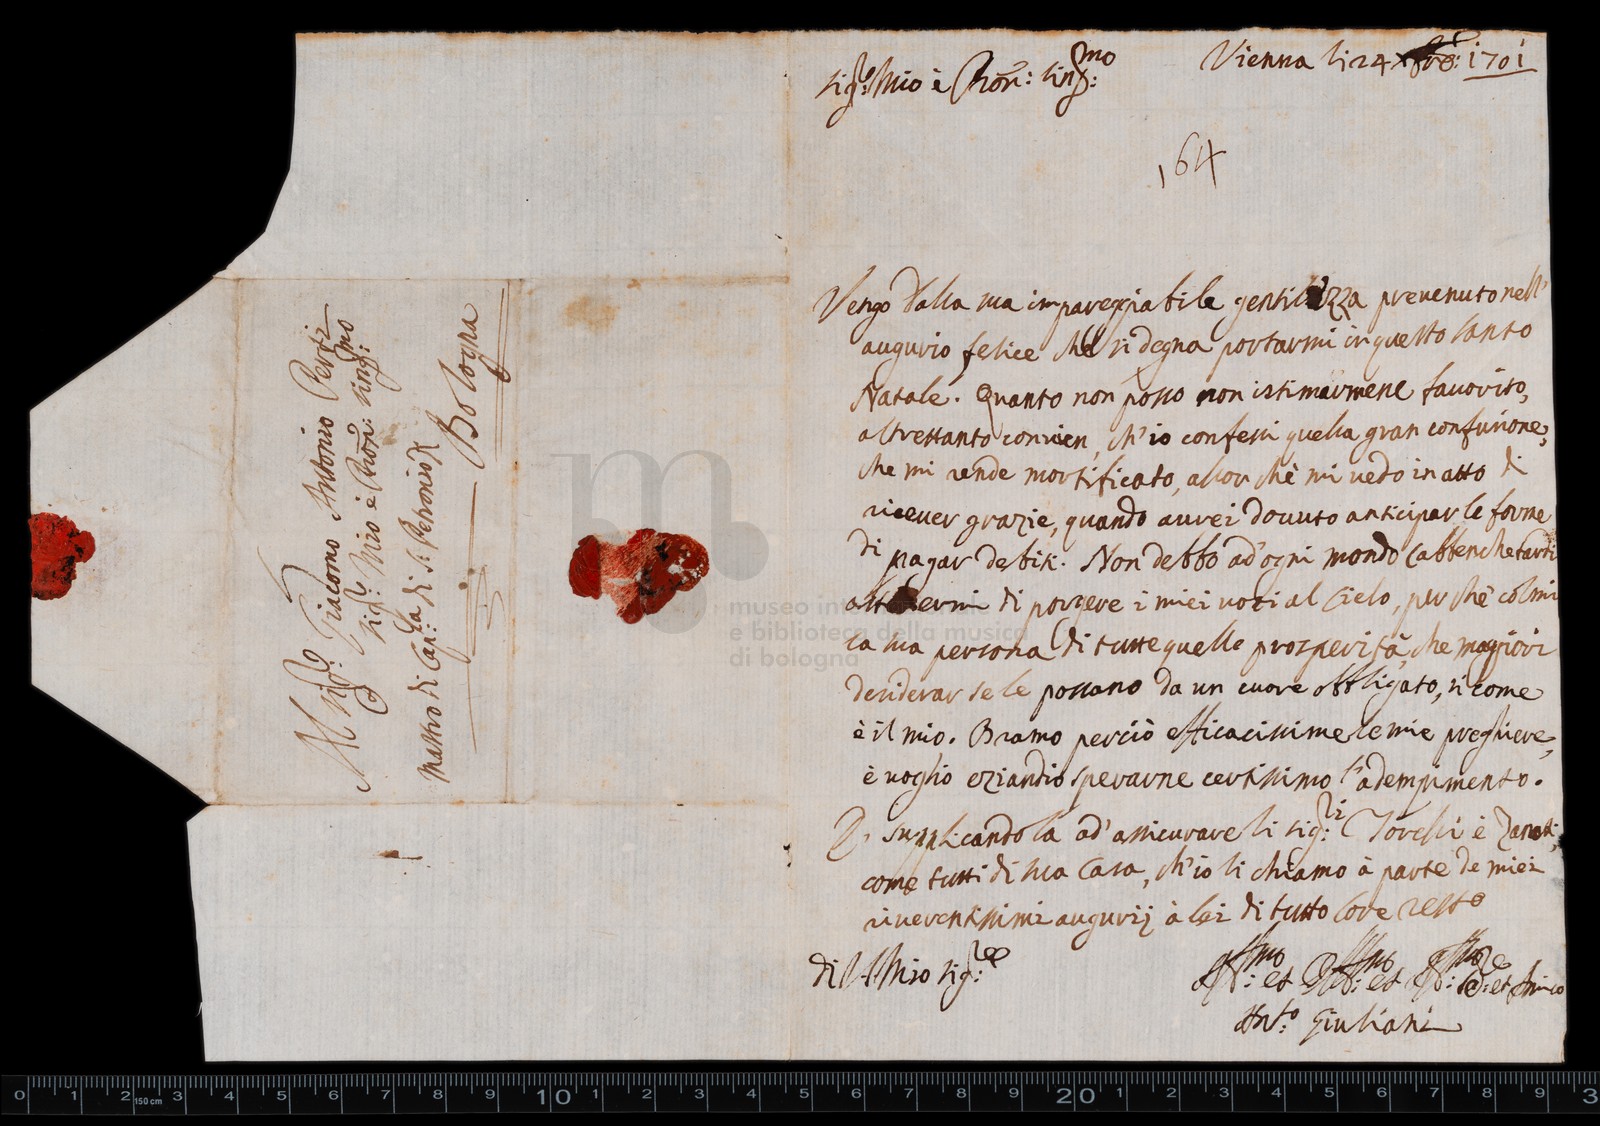 Vienna li 24 Xbre: 1701
Sig:re Mio è Pròn: Sing:mo
164
Vengo dalla sua impareggiabile gentilezza prevenuto nell'
augurio felice che si degna portarmi in questo Santo
Natale. Quanto non posso non istimarmene favorito,
altrettanto convien, ch'io confessi quella gran confusione,
che mi rende mortificato, allor chè mi vedo in atto di
ricever grazie, quando avrei dovuto anticipar le forme
di pagar debiti. Non debbo ad'ogni mondo (abbenche tardi
di porgere i miei voti al Cielo, per chè colmi
la sua persona di tutte quelle prosperità, che maggiori
desiderar se le possano da un cuore obbligato, si come
è il mio. Bramo perciò efficacissime le mie preghiere,
è voglio eziandio sperarne certissimo l'adempimento.
E supplicandola ad'assicurare li Sig:ri Torelli è Zanatti,
come tutti di sua Casa, ch'io li chiamo à parte de miei
riverentissimi augurij à lei di tutto Core resto
di V.S. Mio Sig:re
et et et Amico
Ant:o Giuliani
Al Sig:re Giacomo Antonio Perti
Sig:re Mio è Pròn: Sing:mo
Mastro di Cap:la di S: Petronio
Bologna
museo int
e biblioteca della musica
di bologna
0 1 2 150 cm 3 4 5 6 7 8 9 10 1 2 3 4 5 6 7 8 9 20 1 2 3 4 5 6 7 8 9 3